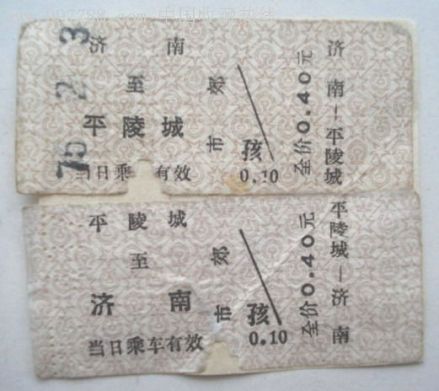 济南
至
平陵城
当日乘 有效
市郊
孩
0.10
全价0.40元
济南—平陵城
平陵城
至
济南
当日乘车有效
市郊
孩
0.10
全价0.40元
平陵城—济南